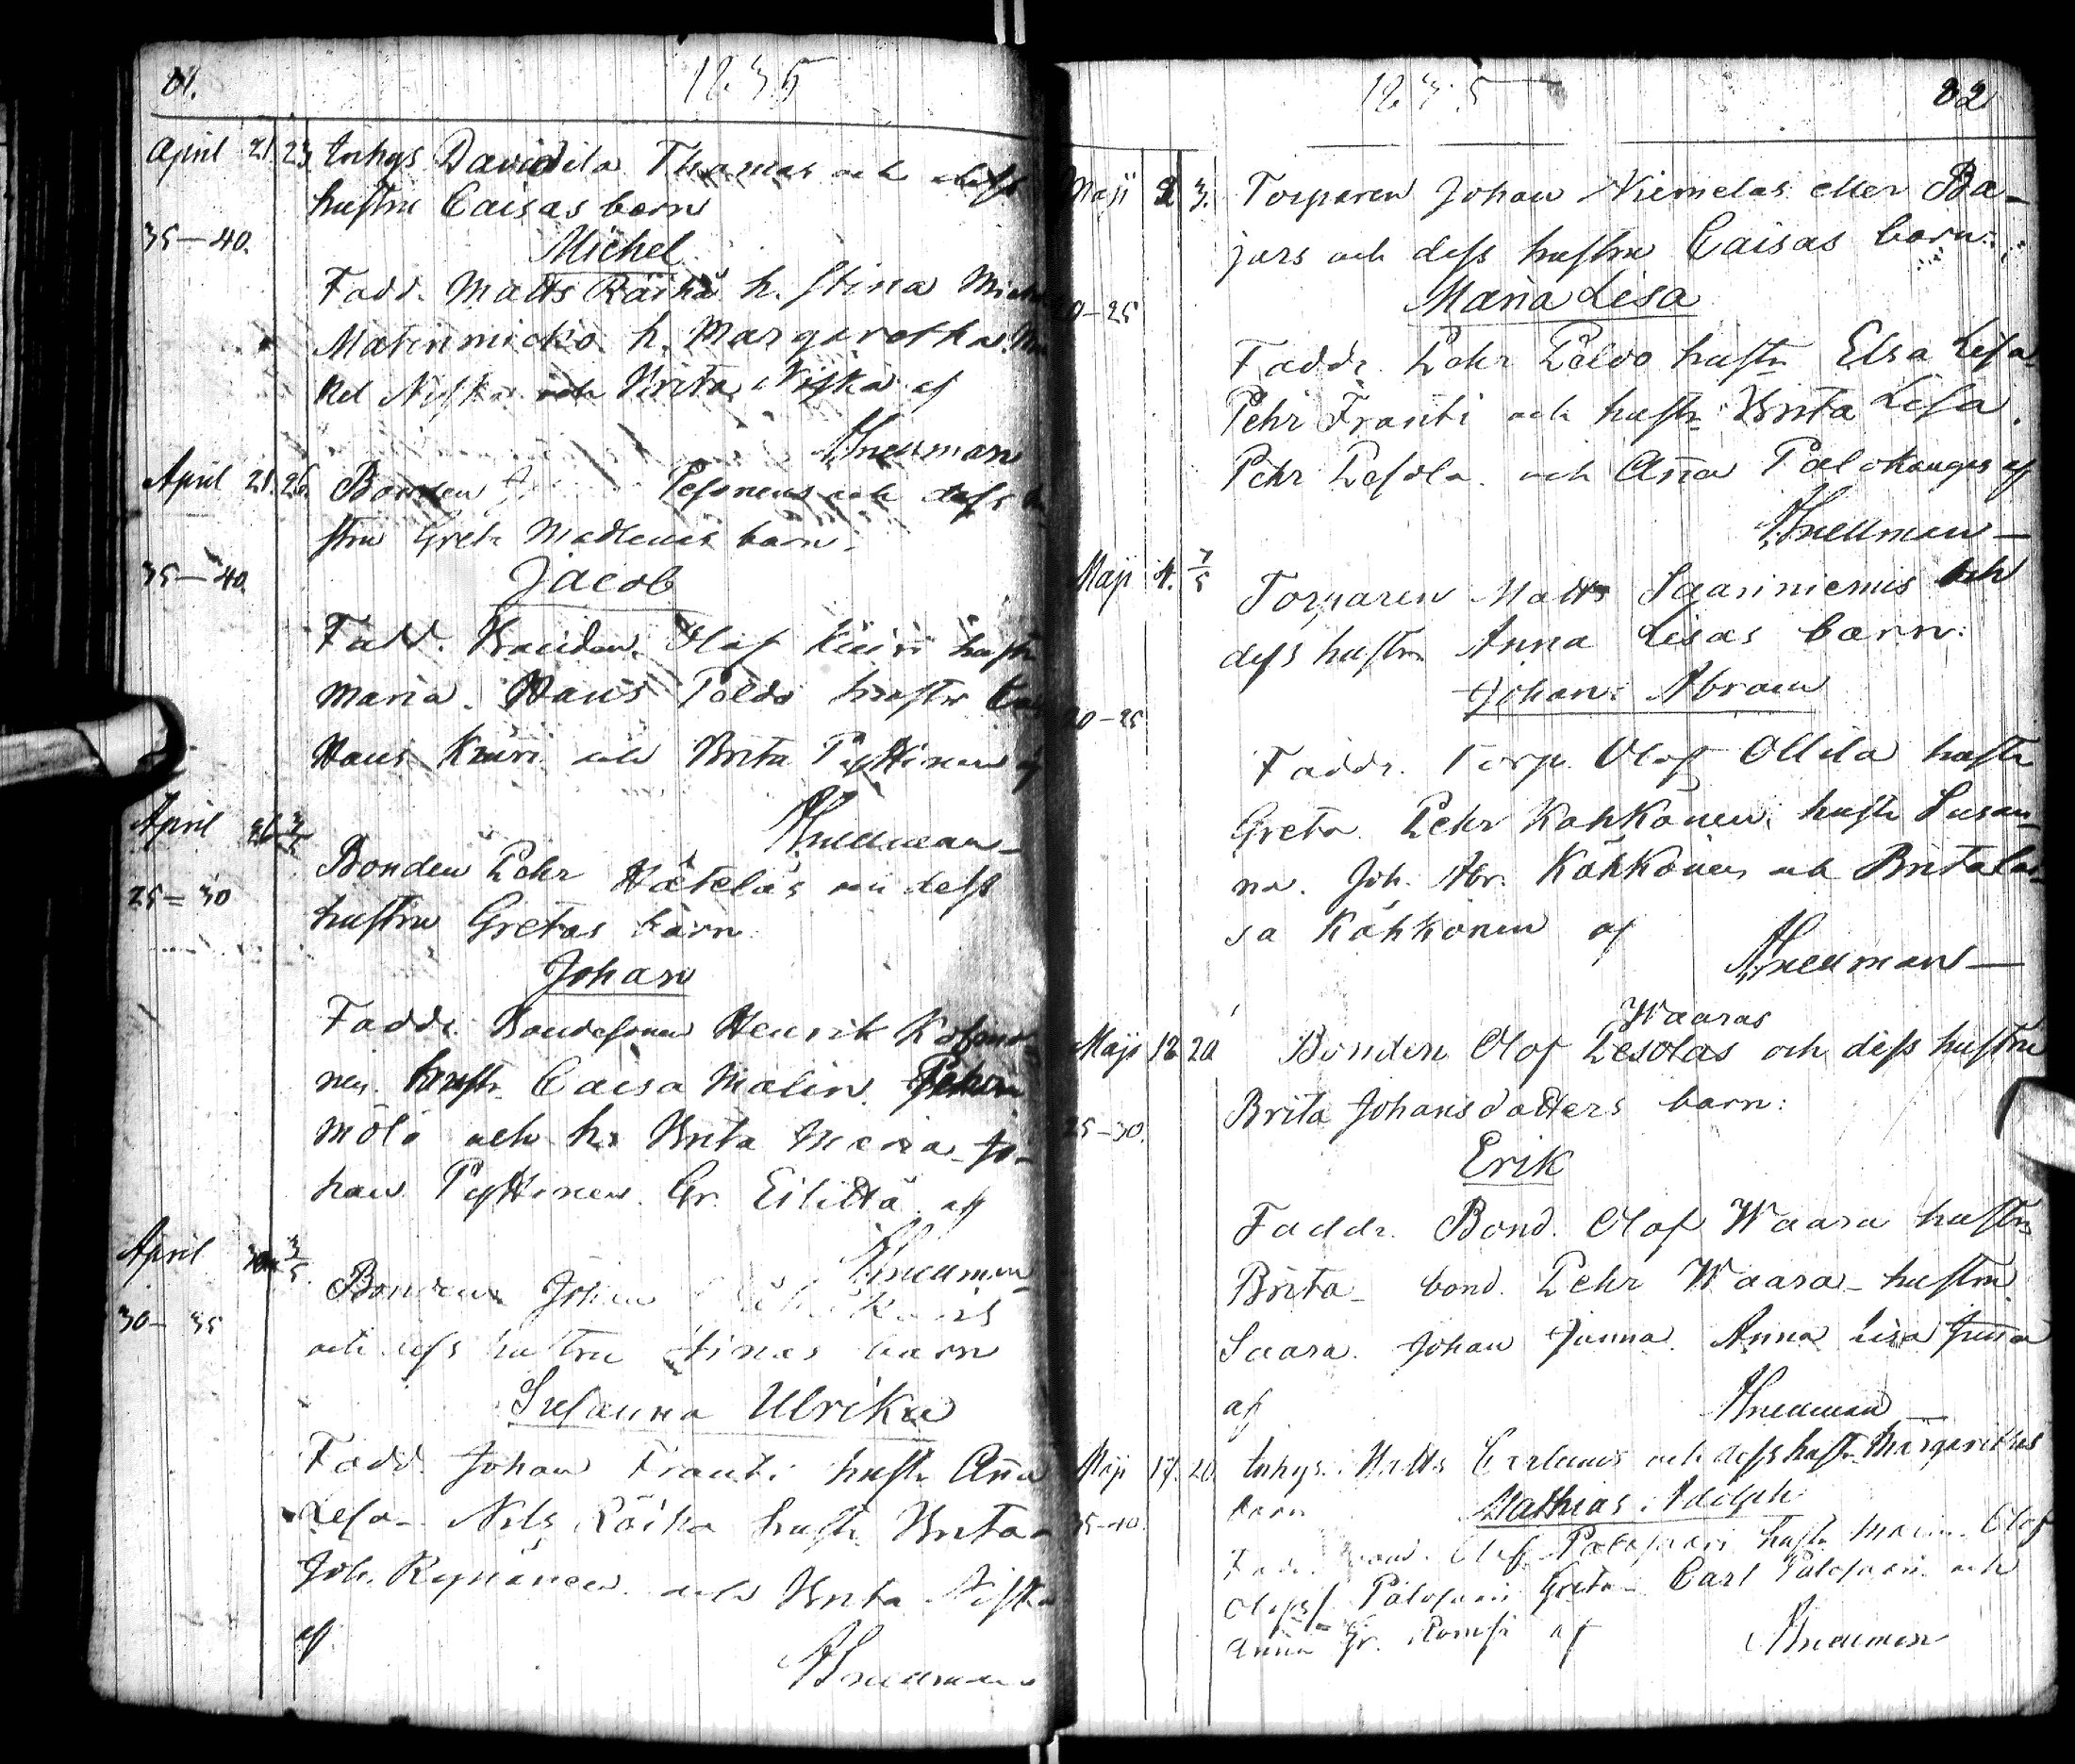 81.
1835
April 21. 23 Inhys Davidila Thomas och dess
hustru Caisas barn
35-40.
Michel
Fadd. Matts Räihä h. Stina
Matinmicko h. Margaretha.
kel Niska och Brita Niska af
Snellman
April 21. 26. Bonden Pesonens och dess
stru Greta Madlenas barn.
35-40.
Jacob
Fadd. Bonden. Olof Kiuri hustr
Maria. Hans Poldo hustr
Hans Kiuri och Brita Pyttinen af
Snellman
April 26 3/5
Bonden Pehr Häteläs och dess
25-30
hustru Gretas barn
Johan
Faddr. Bondesonen Henrik
nen. hustr. Caisa Malin.
mölö och h. Brita Maria Jo-
han Pyttinen. Gr. Eilittä af
Snellman
April 30 3/5
Bonden Johan
30-35
och dess hustru Stinas barn
Susanna Ulrika
Fadd. Johan Franti hustr. Anna
Lesa. Nils Räihä hustr. Brita
Joh. Rynänen och Brita Niska
af
Snellman
1835
82
Maji 2 3. Torparen Johan Niemelas eller Ba-
jars och dess hustru Caisas barn:
Maria Lisa
20-25
Faddr. Pehr Peldo hustr Elsa Lisa
Pehr Franti och hustr. Brita Lisa.
Pehr Lesola och Anna Palokangas af
Snellman
Maji 4. 7/5
Torparen Matts Saariniemis och
dess hustru Anna Lisas barn:
Johan Abram
20-25
Faddr. Torp. Olof Ollila hustr
Greta Pehr Kähkönen hustr Susan-
na. Joh. Abr. Kähkönen och Brita Cai-
sa Kähkönen af
Snellman
Waaras
Maji 12 20 Bonden Olof Lesolas och dess hustru
Brita Johansdotters barn:
25-30.
Erik
Faddr. Bond. Olof Waara hustru
Brita bond. Pehr Waara hustru
Saara. Johan Junna. Anna Lisa Juna
af
Snellman
Maji 17. 20. Inhys. Matts och dess hustr. Margarethas
barn
Mathias Adolph
35-40.
Fadd. bond. Olof Palosaari hustr. Maria. Olof
Olofss. Palosaari Greta Carl Palosaari och
Anna Gr. af
Snellman